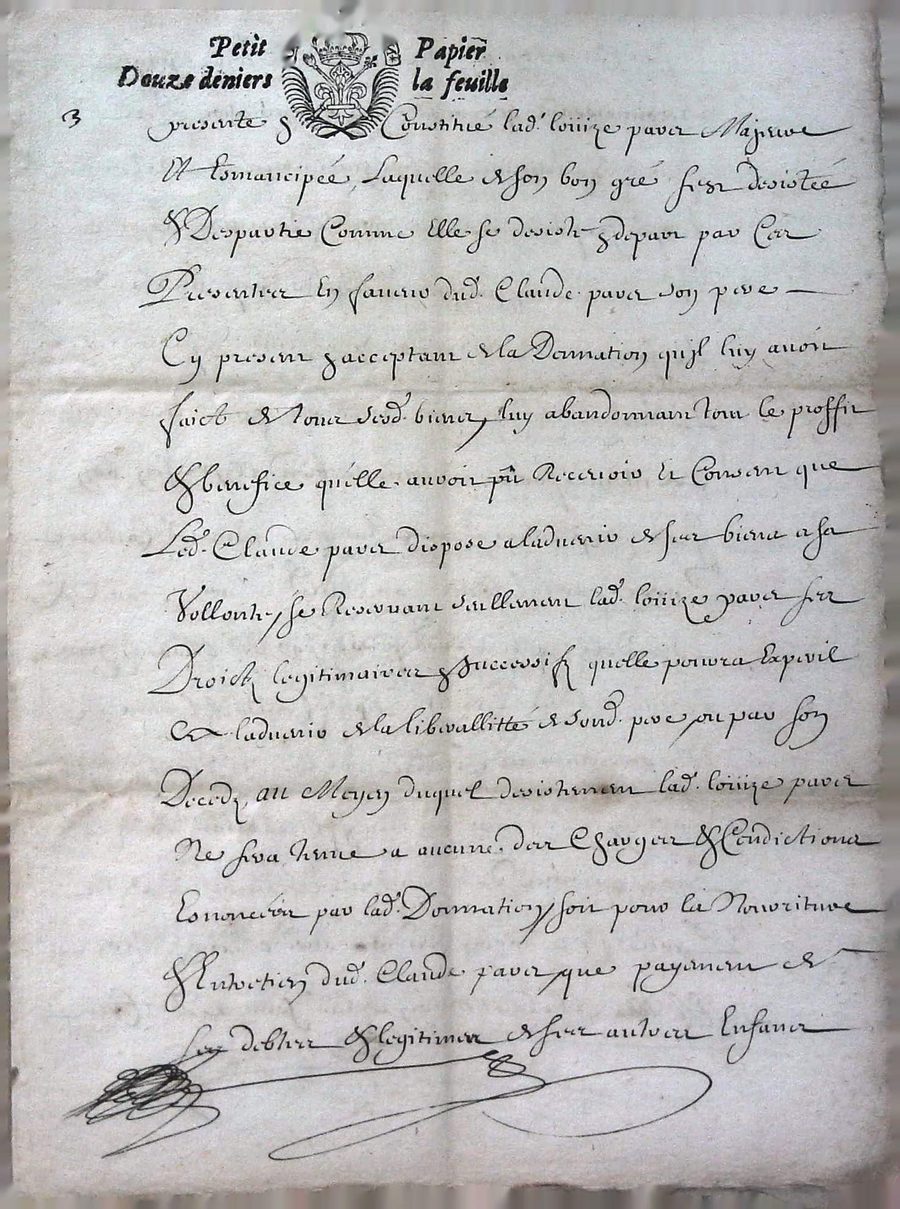 Petit Papier
Douze deniers la feuille
3
presente & Constitué lad. louize paver Majeure
Et Emancipée, Laquelle de son bon gré sest desistée
& Despartie Comme Elle se desiste & depart par Ces
Presentes En faveur dud. Claude paver son pere
Cy present & acceptant de la Donnation quil luy avoit
faict de tous sesd. biens, luy abandonnant tout le proffit
& benefice quelle auroit pû Recevoir Et Consent que
Led. Claude paver dispose aladvenir de ses biens a sa
Vollonte, se Reservant seullement lad. louize paver ses
Droictz legitimaires & successifz quelle poura Exper
aladvenir de la liberallitté de sond. pere, ou par son
Decedz au Moyen duquel desistement lad. louize paver
Ne sera tenue a aucune des Charges & Condictions
Enoncées par lad. Donnation, soit pour la Nourriture
& Entretien dud. Claude paver, que payement de
Ses debtes & legitimes de ses autres Enfans